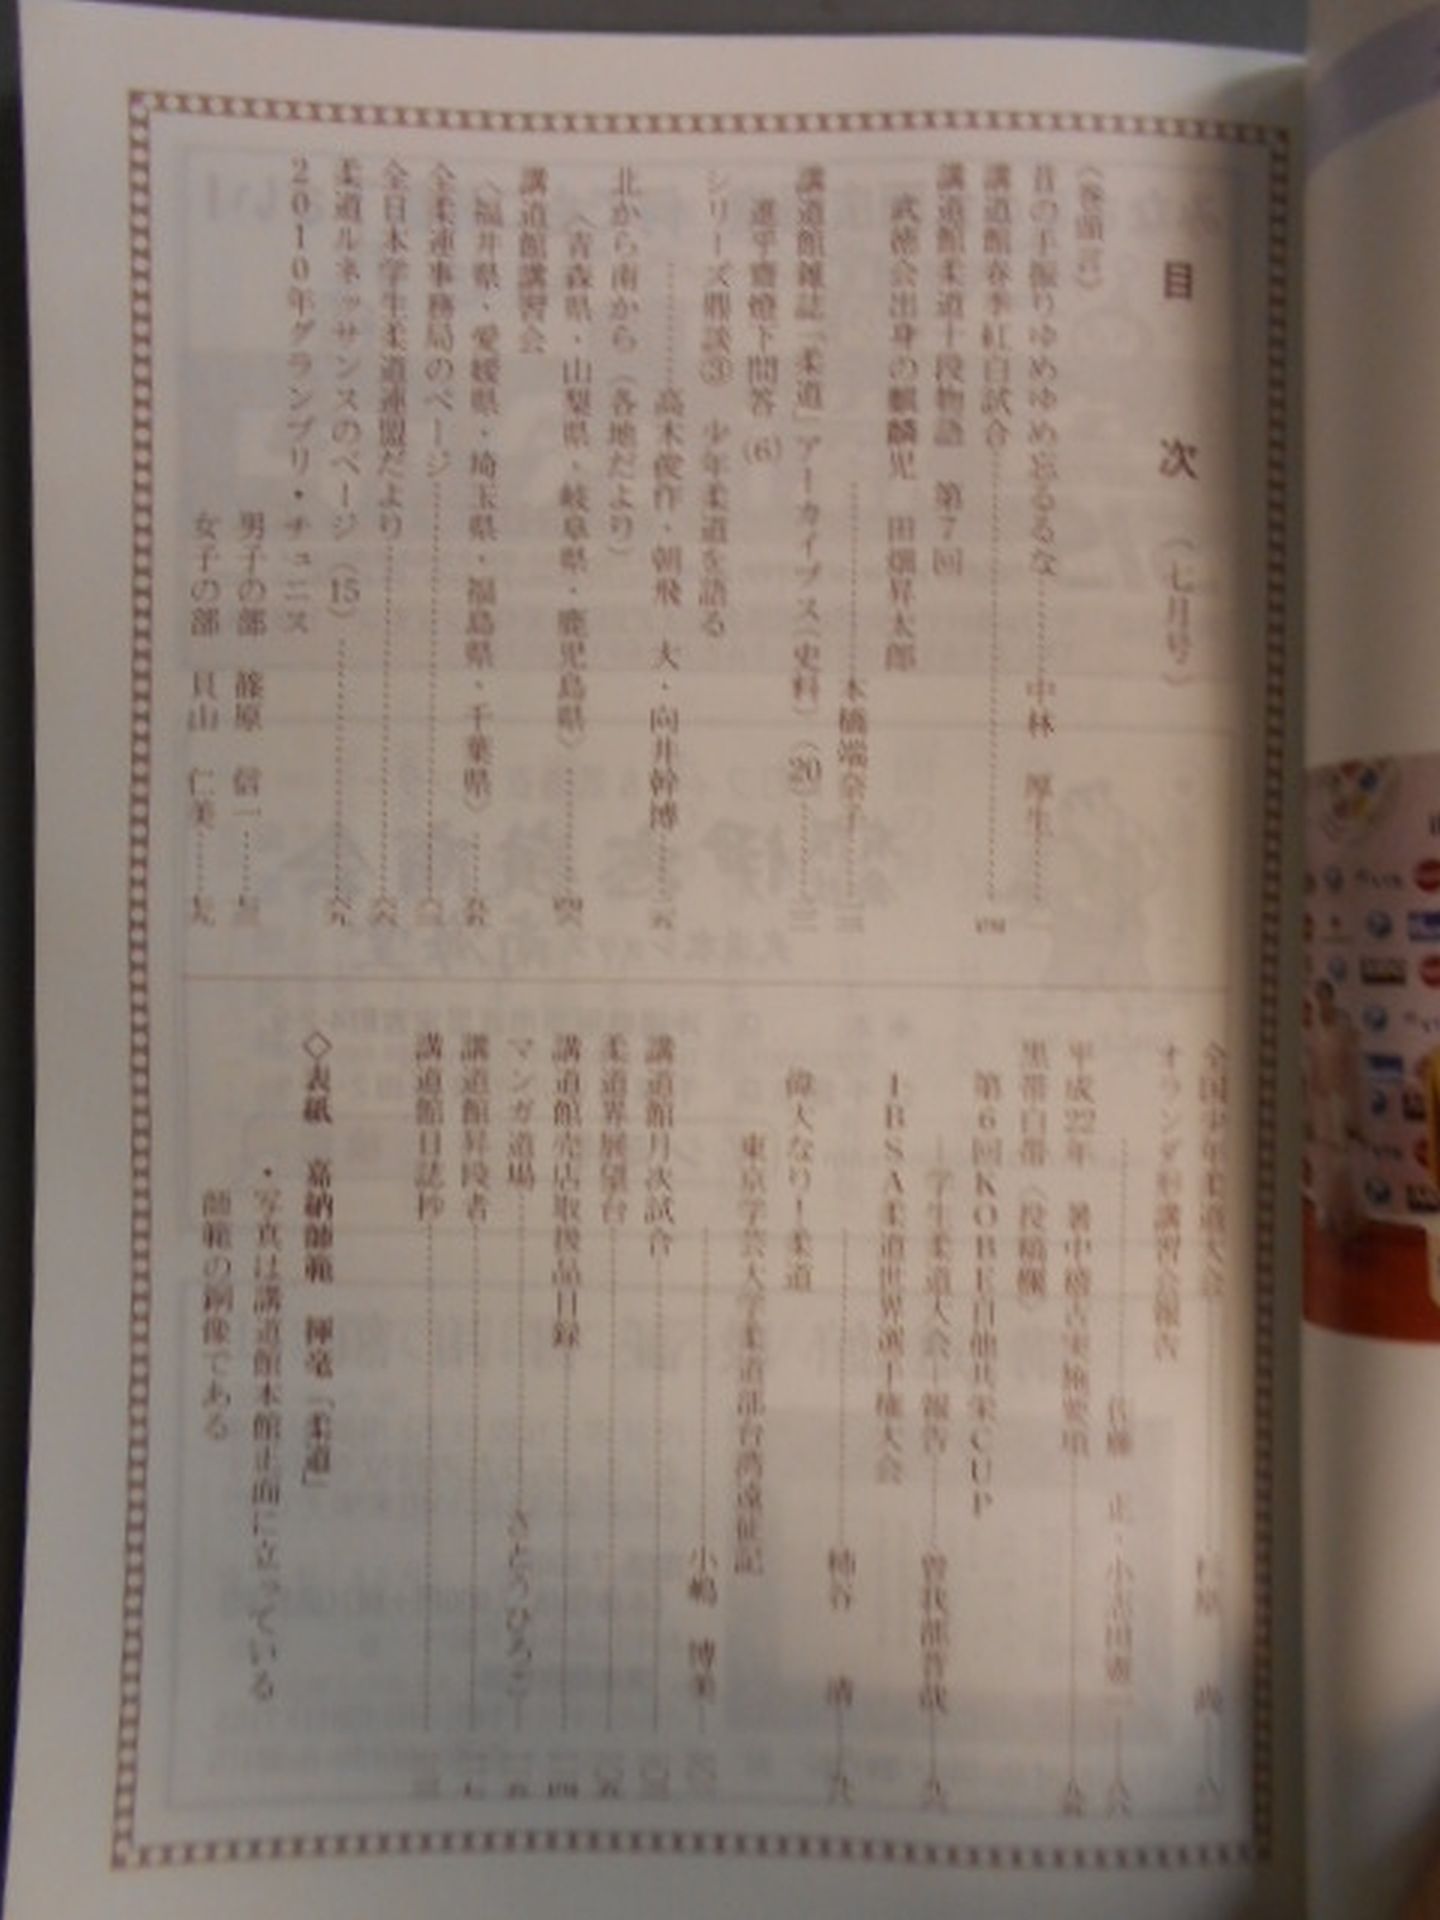 目次（七月号）
〈巻頭言〉
昔の手振りゆめゆめ忘るるな……中林　厚生……
講道館春季紅白試合……
講道館柔道十段物語　第7回
武徳会出身の麒麟児　田畑昇太郎
……本橋端奈子……三
講道館雑誌「柔道」アーカイブス（史料）（20）……三
進乎齋燈下問答（6）
シリーズ鼎談③　少年柔道を語る
……高木俊作・朝飛　大・向井幹博……
北から南から（各地だより）
〈青森県・山梨県・岐阜県・鹿児島県〉……
講道館講習会
〈福井県・愛媛県・埼玉県・福島県・千葉県〉……
全柔連事務局のページ……
全日本学生柔道連盟だより……
柔道ルネッサンスのページ（15）……
2010年グランプリ・チュニス
男子の部　篠原　信一……
女子の部　貝山　仁美……
全国少年柔道大会……
オランダ形講習会報告
……佐藤　正・小志田憲一……
平成22年　暑中稽古実施要項……
黒帯白帯〈投稿欄〉
第6回KOBE自他共栄CUP
―学生柔道大会―報告……曽我部晋哉……
IBSA柔道世界選手権大会
……柿谷　清……
偉大なり！柔道
東京学芸大学柔道部台湾遠征記
……小嶋　博美……
講道館月次試合……
柔道界展望台……
講道館売店取扱品目録……
マンガ道場……
講道館昇段者……
講道館日誌抄……
◇表紙　嘉納師範　揮毫「柔道」
・写真は講道館本館正面に立っている
師範の銅像である